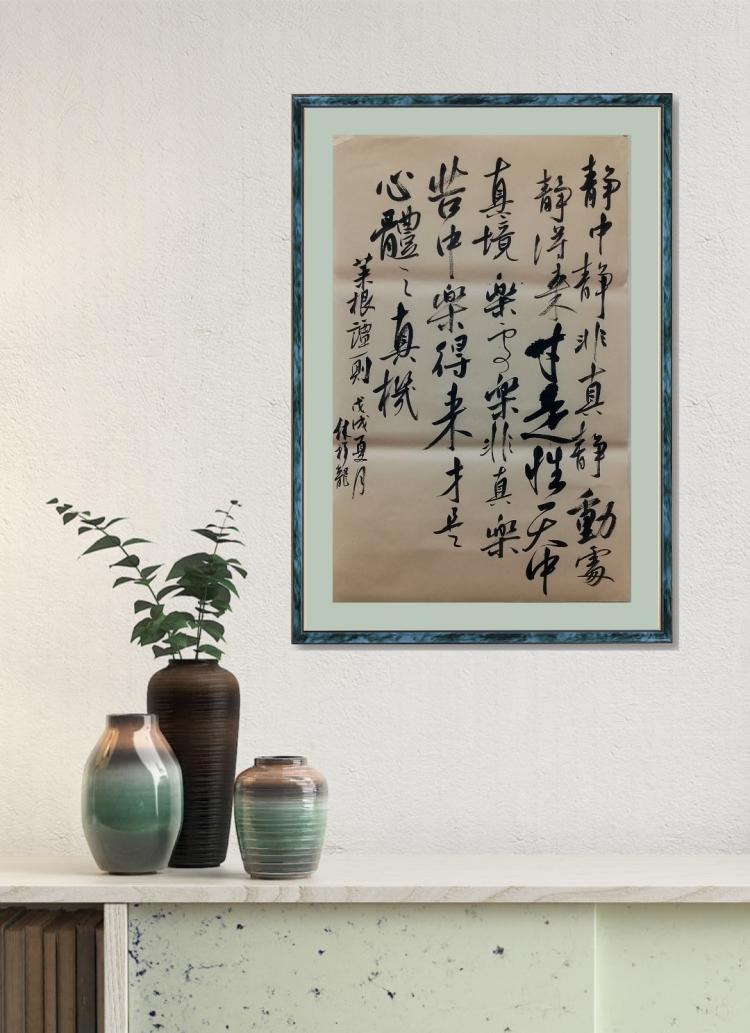 静中静非真静動處
静得来才是性天中
真境樂處樂非真樂
苦中樂得来才是
心體之真機
菜根譚一則 戊戌夏月
龍